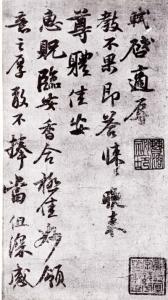 軾啓適辱
教不果即答悚晚來
尊體佳安
惠貺臨安香合極佳妙領
意之厚敢不捧當但深感